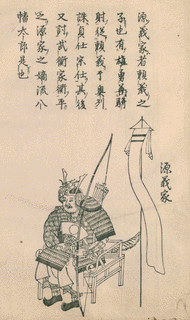 源義家者頼義之
子也有雄勇善騎
射従頼義于奥州
誅貞任宗任其後
又討武衡家衡平
之源家之嫡流八
幡太郎是也
源義家